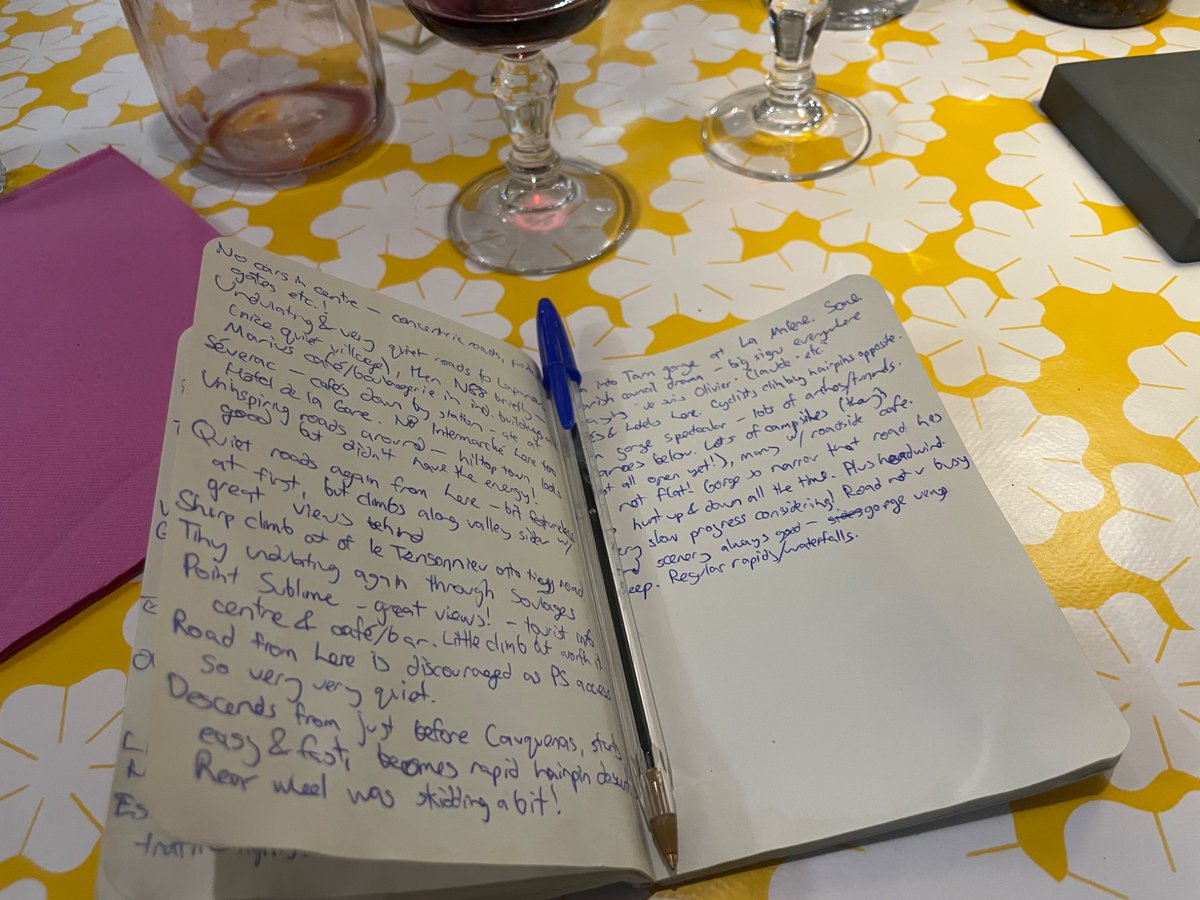 No cars in centre – concentric roads,
gates etc.!
Undulating & very quiet roads to
(nice quiet village), then N88 briefly
Marius café/boulangerie in ind. buildings
Séverac – cafés down by station – ate at
Hotel de la Gare. No Intermarché here too
Uninspiring roads around – hilltop town, looks
good but didn't have the energy!
Quiet roads again from here – bit featureless
at first, but climbs along valley side w/
great views behind
Sharp climb out of le Tensonnieu onto tiggy road
Tiny undulating again through Soulages
Point Sublime – great views! – tourist info
centre & café/bar. Little climb but worth it
Road from here is discouraged as PS access
so very very quiet.
Descends from just before Cauquenas, starts
easy & fast, becomes rapid hairpin descent
Rear wheel was skidding a bit!
Es
into Tarn gorge at La Malène. Some
council drama – big signs everywhere
je suis Olivier. Claude etc.
& hotels here. Cyclists climbing hairpins opposite.
gorge spectacular – lots of arches/tunnels.
below. Lots of campsites (though
all open yet!), many w/ roadside cafe.
not flat! Gorge so narrow that road has
up & down all the time. Plus headwind.
slow progress considering! Road not v busy
scenery always good – gorge very
Regular rapids/waterfalls.